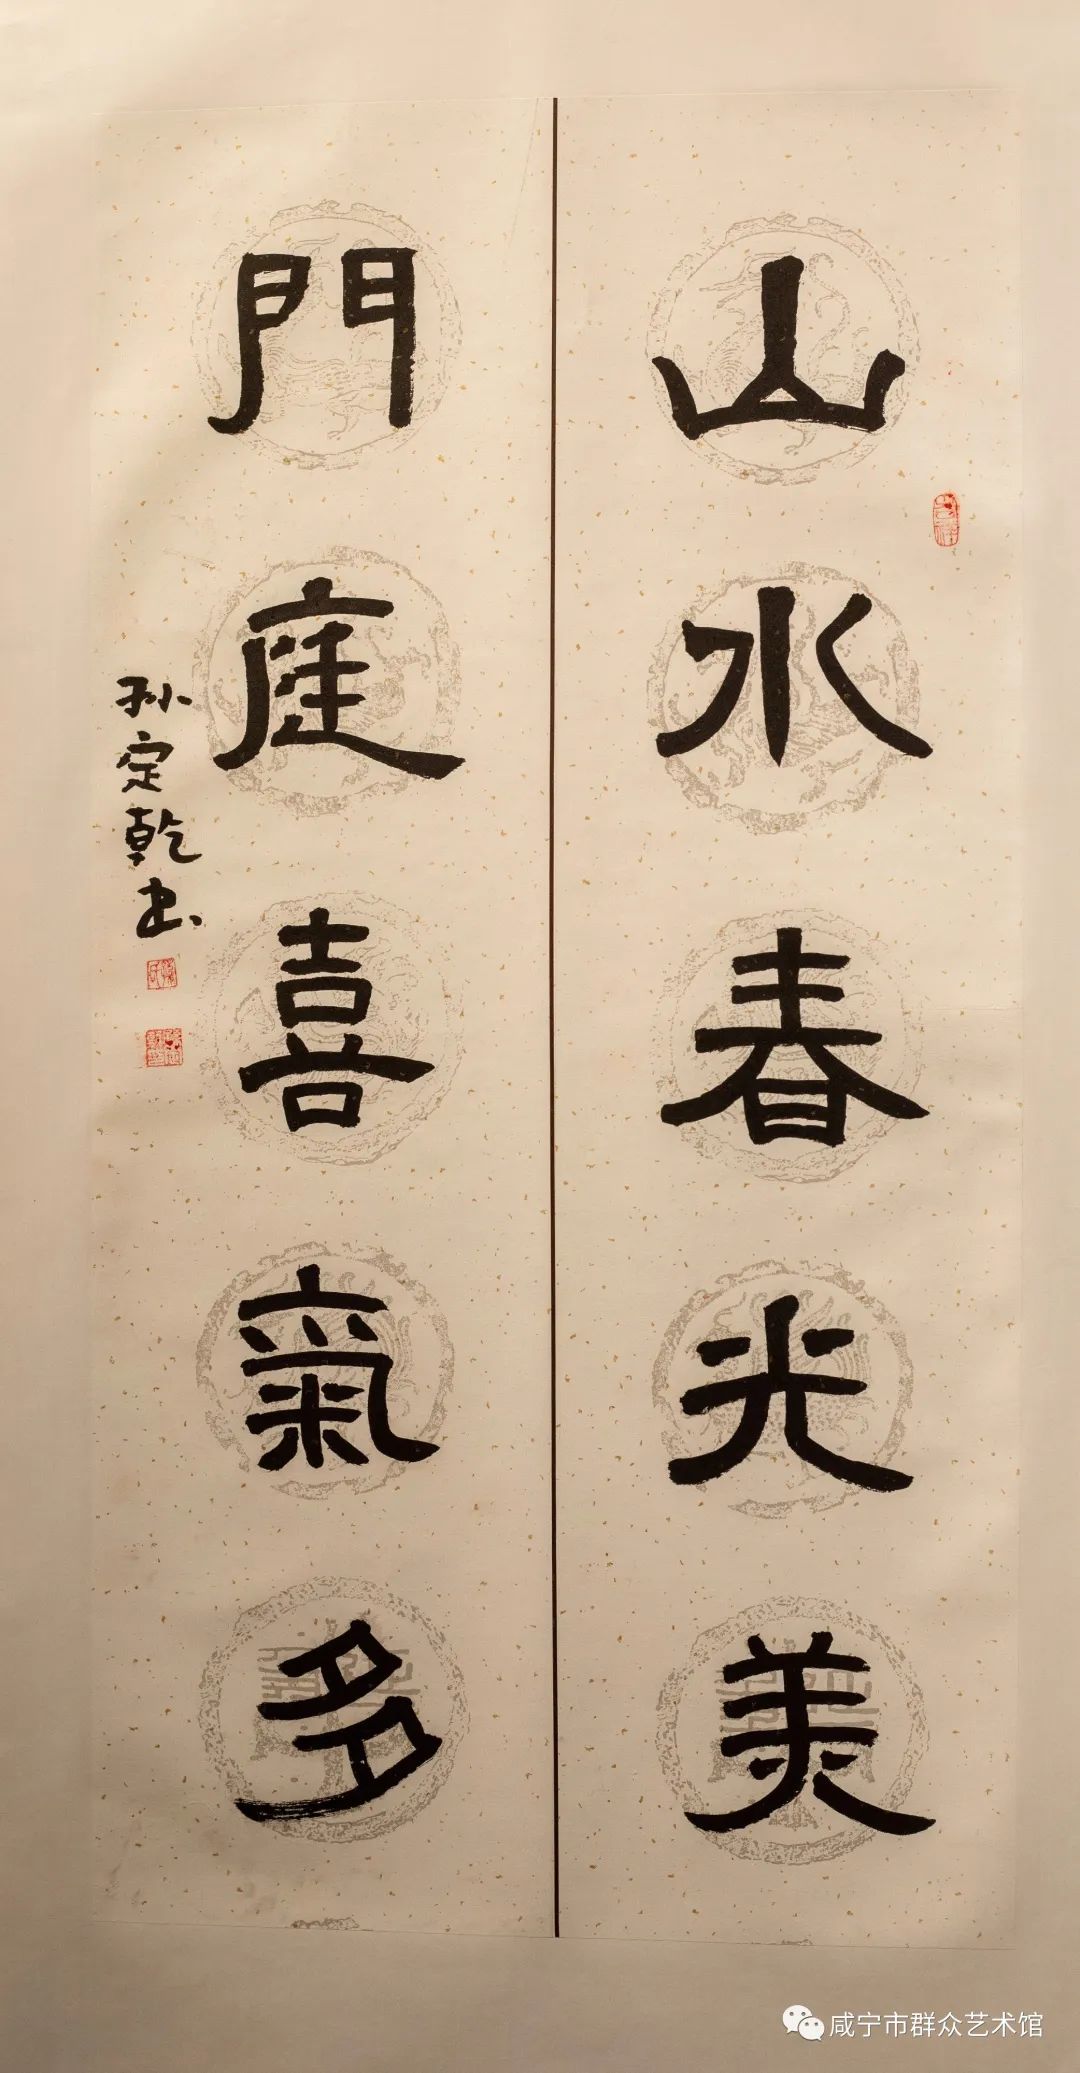 山水春光美
門庭喜氣多
孙定乾书
吉祥
咸宁市群众艺术馆